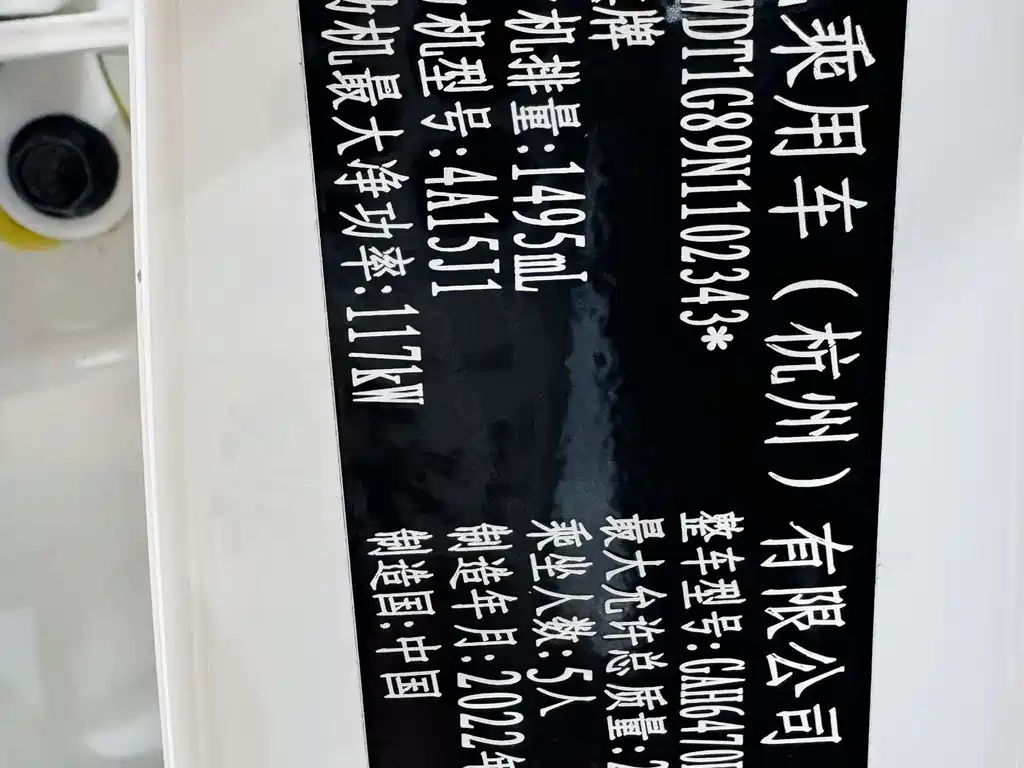 乘用车（杭州）有限公司
WDT1G89N1102343*
牌
整车型号:GAH6470
最大允许总质量:2
机排量:1495mL
乘坐人数:5人
机型号:4A15J1
制造年月:2022年
动机最大净功率:117kW
制造国:中国